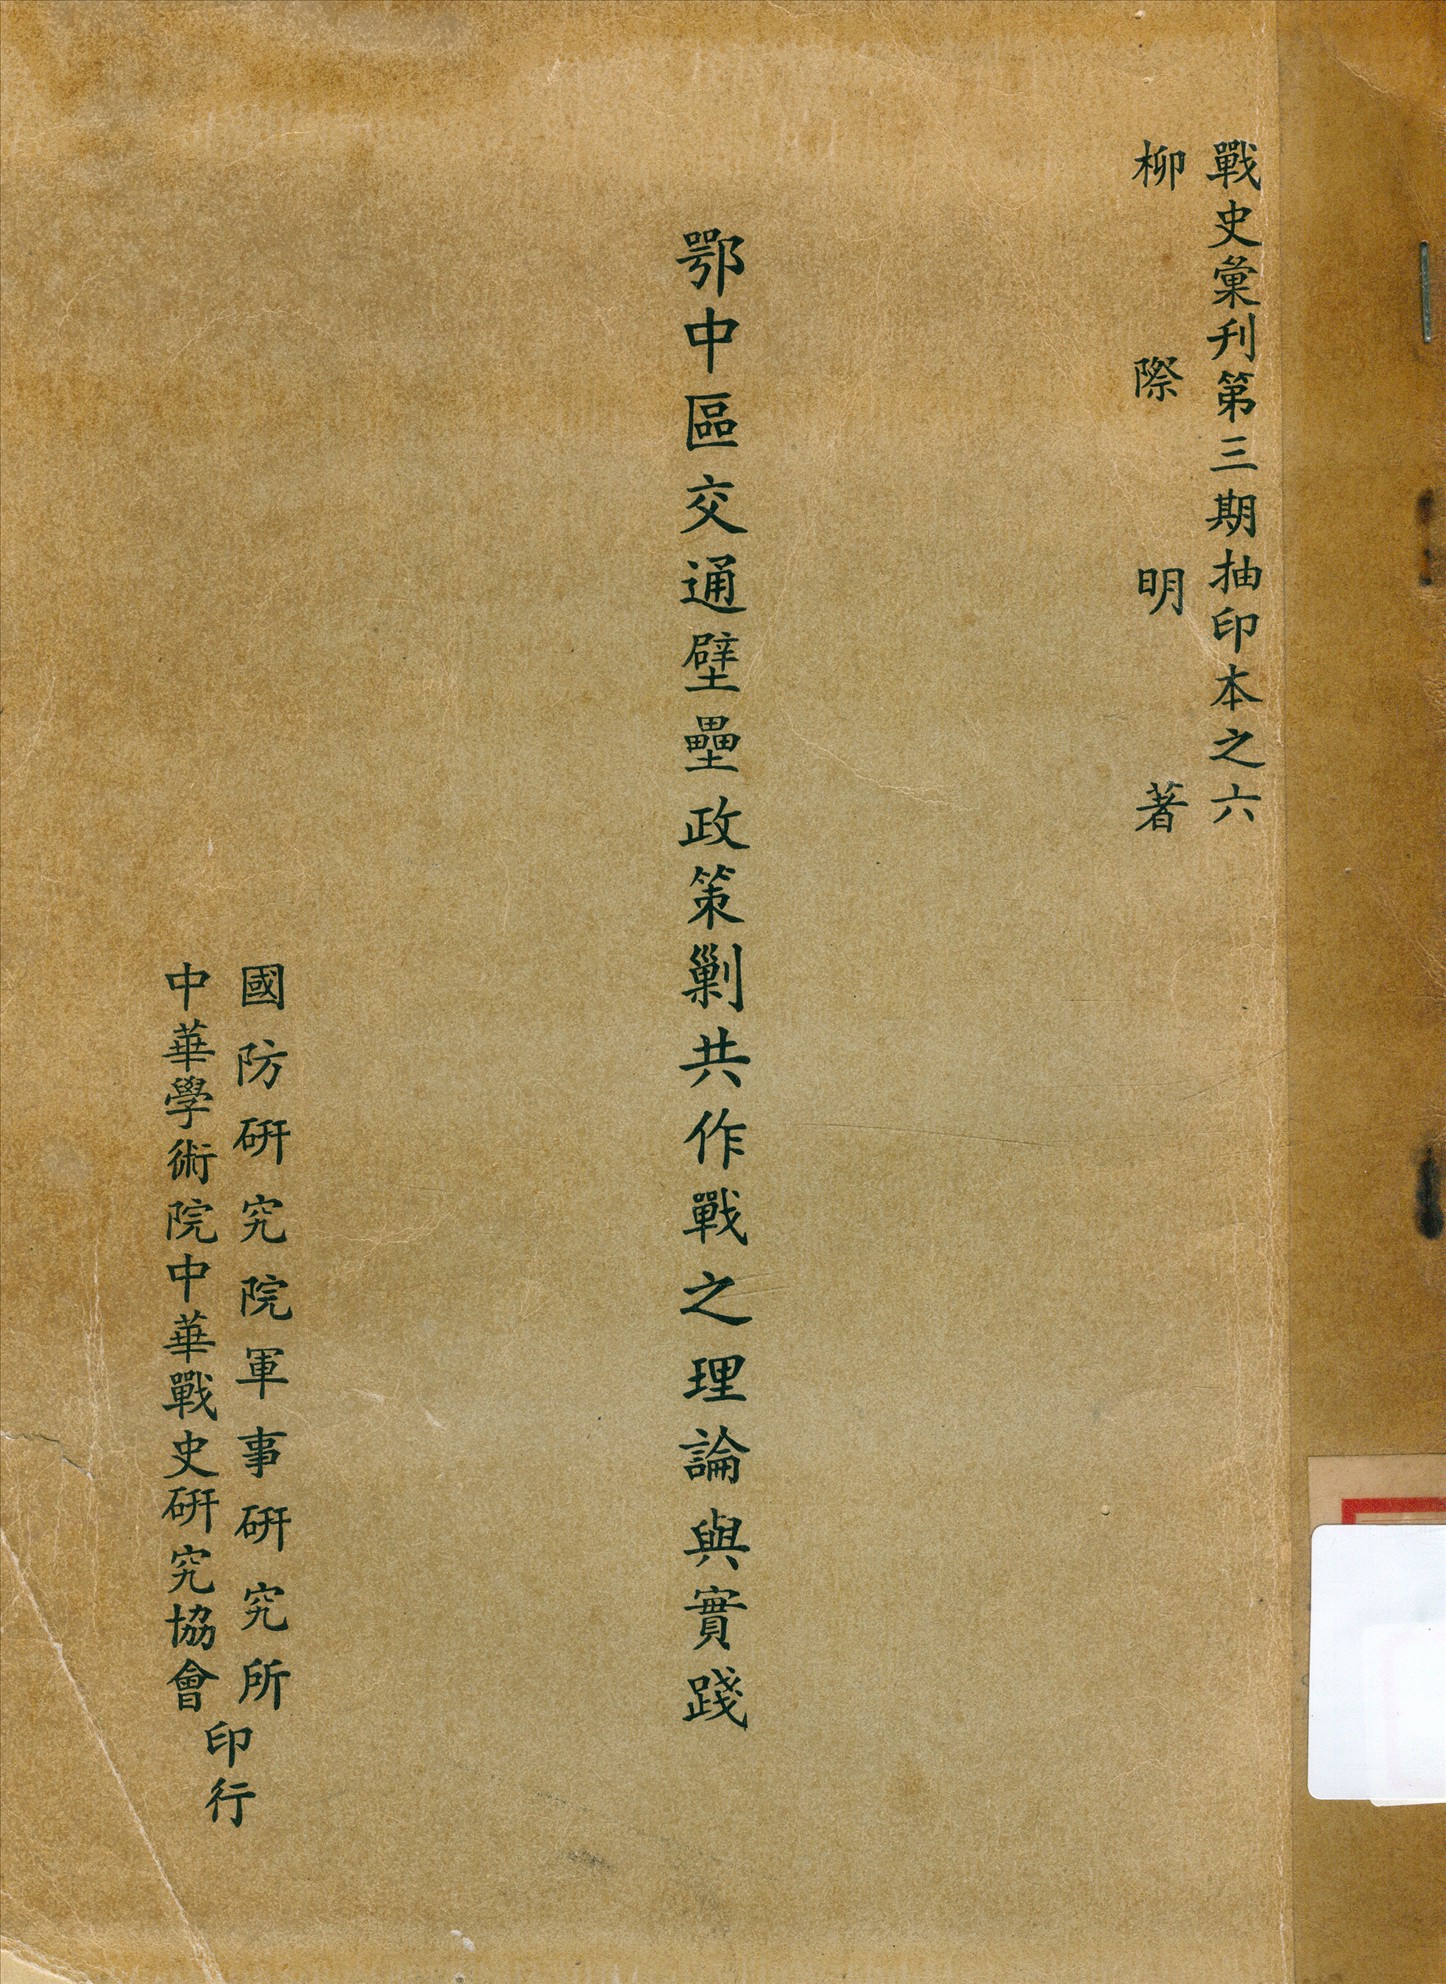 戰史彙刊第三期抽印本之六
柳際明著
鄂中區交通壁壘政策剿共作戰之理論與實踐
國防研究院軍事研究所
中華學術院中華戰史研究協會
印行